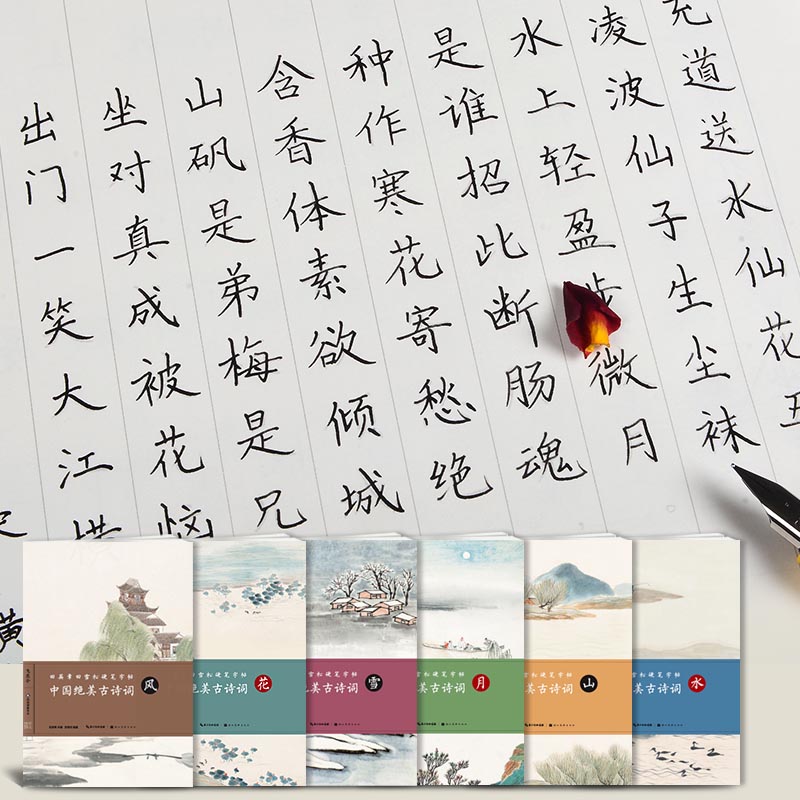 充道送水仙花五
凌波仙子生尘袜
水上轻盈步微月
是谁招此断肠魂
种作寒花寄愁绝
含香体素欲倾城
山矾是弟梅是兄
坐对真成被花恼
出门一笑大江横
田英章田雪松硬笔字帖
中国绝美古诗词 风
雪松硬笔字帖
绝美古诗词 花
雪松硬笔字帖
美古诗词 雪
雪松硬笔字帖
美古诗词 月
雪松硬笔字帖
美古诗词 山
雪松硬笔字帖
美古诗词 水